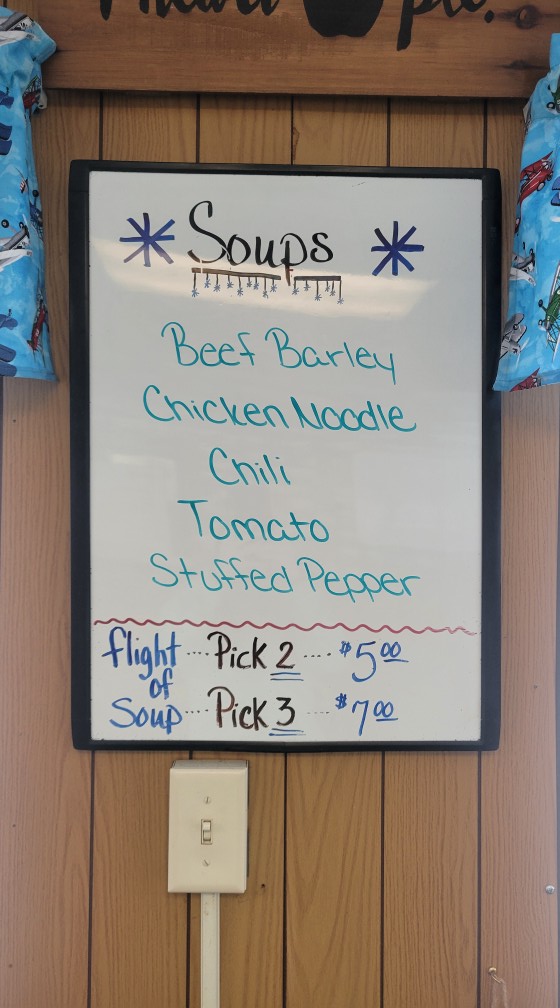 Soups
Beef Barley
Chicken Noodle
Chili
Tomato
Stuffed Pepper
flight of Soup
Pick 2 .... $5.00
Pick 3 .... $7.00